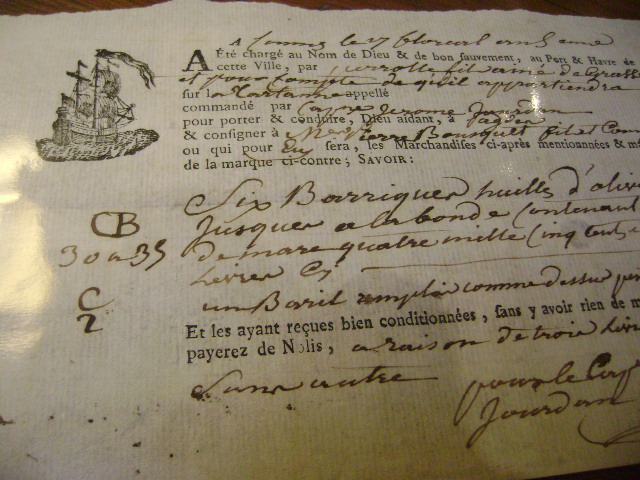 A
le 7 floreal an
A Été chargé au Nom de Dieu & de bon sauvement, au Port & Havre de
cette Ville, par fils ainé de Grasse
et pour Compte de qu'il appartiendra
sur la Tartanne appellé
commandé par Capne Jerome Jourdan
pour porter & conduire, Dieu aidant, à
& consigner à Pierre Bousquet fils et Com
ou qui pour Eux sera, les Marchandises ci-après mentionnées & m
de la marque ci-contre; SAVOIR:
Six Barriques huille d'olive
CB
Jusques a la bonde Contenant
30 a 35
de marc quatre mille Cinq Cent
Livres
C
2
un Baril remplie comme dessus
Et les ayant reçues bien conditionnées, sans y avoir rien de m
payerez de Nolis, a raison de trois Livre
Sans autre
pour le Cap
Jourdan